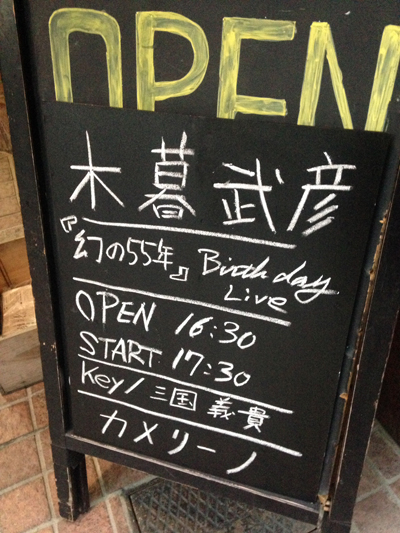 OPEN
木暮 武彦
『幻の55年』 Birthday
Live
OPEN 16:30
START 17:30
Key/三国 義貴
カメリーノ